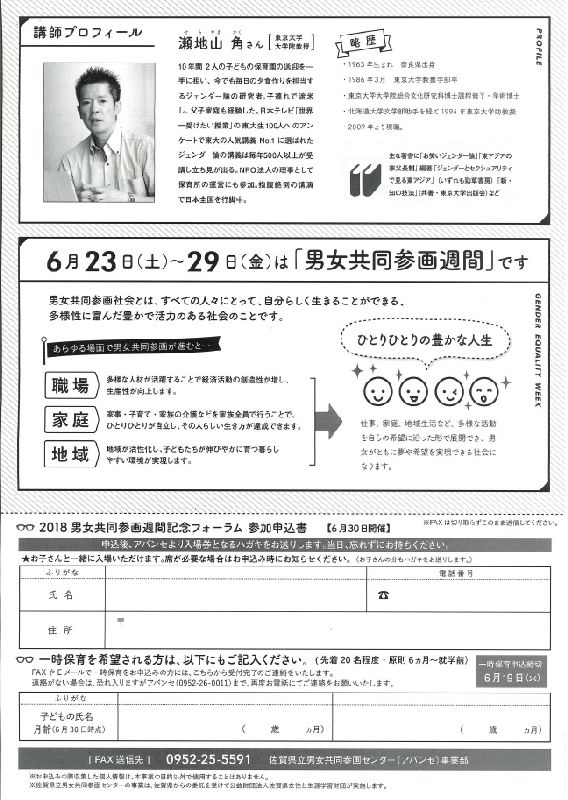 講師プロフィール
せちやま かく
瀬地山 角さん [東京大学大学院教授]
10年間2人の子どもの保育園の送迎を一
手に担い、今でも毎日の夕食作りを担当す
るジェンダー論の研究者。子連れで渡米
し、父子家庭も経験した。日本テレビ「世界
一受けたい授業」の東大生100人へのアン
ケートで東大の人気講義No1に選ばれた
ジェンダー論の講義は毎年500人以上が受
講し立ち見が出る。NPO法人の理事として
保育所の運営にも参画。抱腹絶倒の講演
で日本全国を行脚中。
略歴
・1963年生まれ 奈良県出身
・1986年3月 東京大学教養学部卒
・東京大学大学院総合文化研究科博士課程修了・学術博士
・北海道大学文学部助手を経て1994年東京大学助教授
2009年より現職。
主な著書に「お笑いジェンダー論」「東アジアの
家父長制」編著「ジェンダーとセクシュアリティ
で見る東アジア」(いずれも勁草書房)「新・
知の技法」(共著・東京大学出版会)など
PROFILE
6月23日(土)~29日(金)は「男女共同参画週間」です
男女共同参画社会とは、すべての人々にとって、自分らしく生きることができる、
多様性に富んだ豊かで活力のある社会のことです。
あらゆる場面で男女共同参画が進むと…
職場
多様な人材が活躍することで経済活動の創造性が増し、
生産性が向上します。
家庭
家事・子育て・家族の介護などを家族全員で行うことで、
ひとりひとりが自立し、その人らしい生き方が達成できます。
地域
地域が活性化し、子どもたちが伸びやかに育つ暮らし
やすい環境が実現します。
ひとりひとりの豊かな人生
仕事、家庭、地域生活など、多様な活動
を自らの希望に沿った形で展開でき、男
女がともに夢や希望を実現できる社会に
なります。
GENDER EQUALITY WEEK
2018 男女共同参画週間記念フォーラム 参加申込書 【6月30日開催】
※FAXは切り取らずこのまま送信してください。
申込後、アバンセより入場券となるハガキをお送りします。当日、忘れずにお持ちください。
★お子さんと一緒に入場いただけます。席が必要な場合はお申込み時にお知らせください。(お子さんの分もハガキをお送りします。)
ふりがな
電話番号
氏名
☎
住所
〒
一時保育を希望される方は、以下にもご記入ください。(先着20名程度・原則6ヵ月~就学前)
FAXやEメールで一時保育をお申込みの方には、こちらから受付完了のご連絡をいたします。
連絡がない場合は、恐れ入りますがアバンセ(0952-26-0011)まで、再度お電話にてご連絡をお願いいたします。
一時保育申込締切
6月19日(火)
ふりがな
子どもの氏名
月齢(6月30日時点)
( 歳 ヵ月)
( 歳 ヵ月)
[FAX送信先] 0952-25-5591 佐賀県立男女共同参画センター(アバンセ)事業部
※お申込みの際収集した個人情報は、本事業の目的以外で使用することはありません。
※佐賀県立男女共同参画センターの事業は、佐賀県からの委託を受けて公益財団法人佐賀県女性と生涯学習財団が実施します。